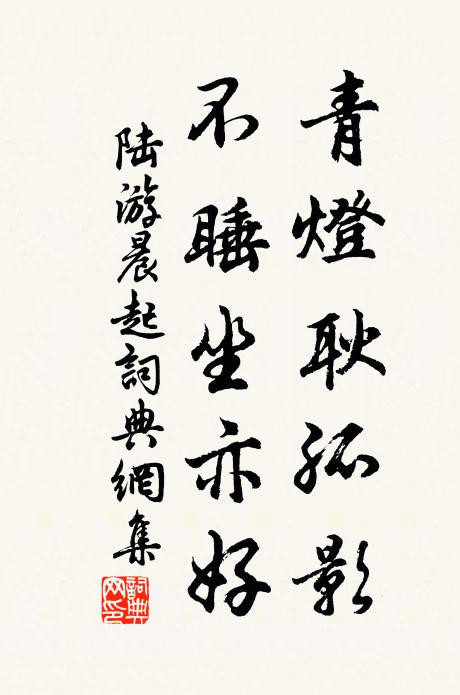 青燈耿孤影
不睡坐亦好
陸游晨起詞典網集
詞典網印